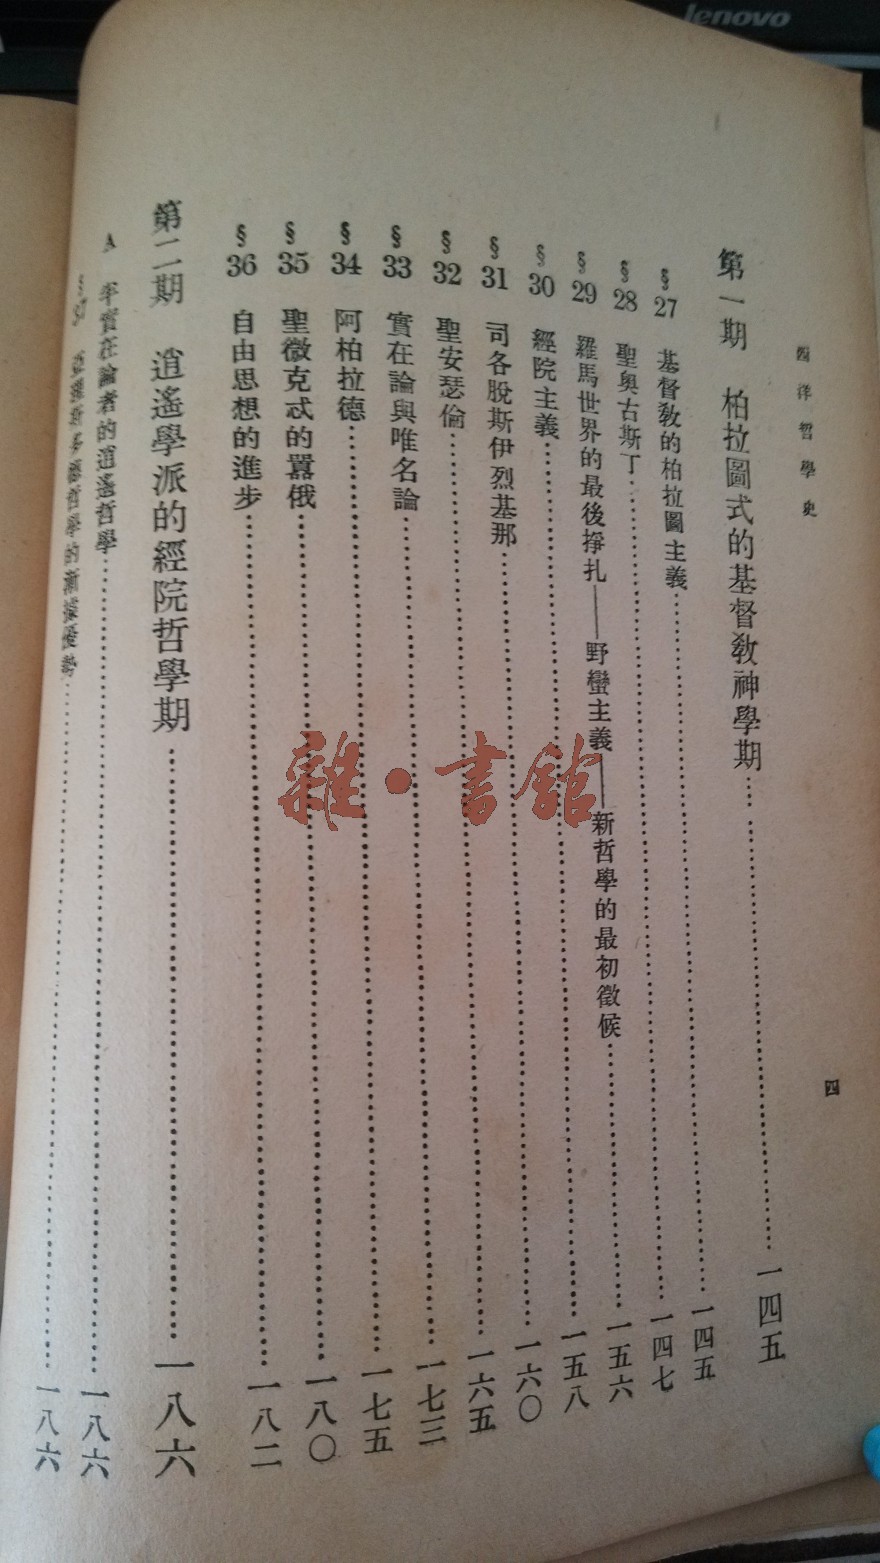 西洋哲學史
四
第一期 柏拉圖式的基督教神學期……一四五
§27 基督教的柏拉圖主義……一四五
§28 聖奧古斯丁……一四七
§29 羅馬世界的最後掙扎——野蠻主義——新哲學的最初徵候……一五六
§30 經院主義……一五八
§31 司各脫斯伊烈基那……一六〇
§32 聖安瑟倫……一六五
§33 實在論與唯名論……一七三
§34 阿柏拉德……一七五
§35 聖微克忒的囂俄……一八〇
§36 自由思想的進步……一八二
第二期 逍遙學派的經院哲學期……一八六
A 半實在論者的逍遙哲學……一八六
§37 亞里斯多德哲學的漸據優勢……一八六
雜·書館
lenovo